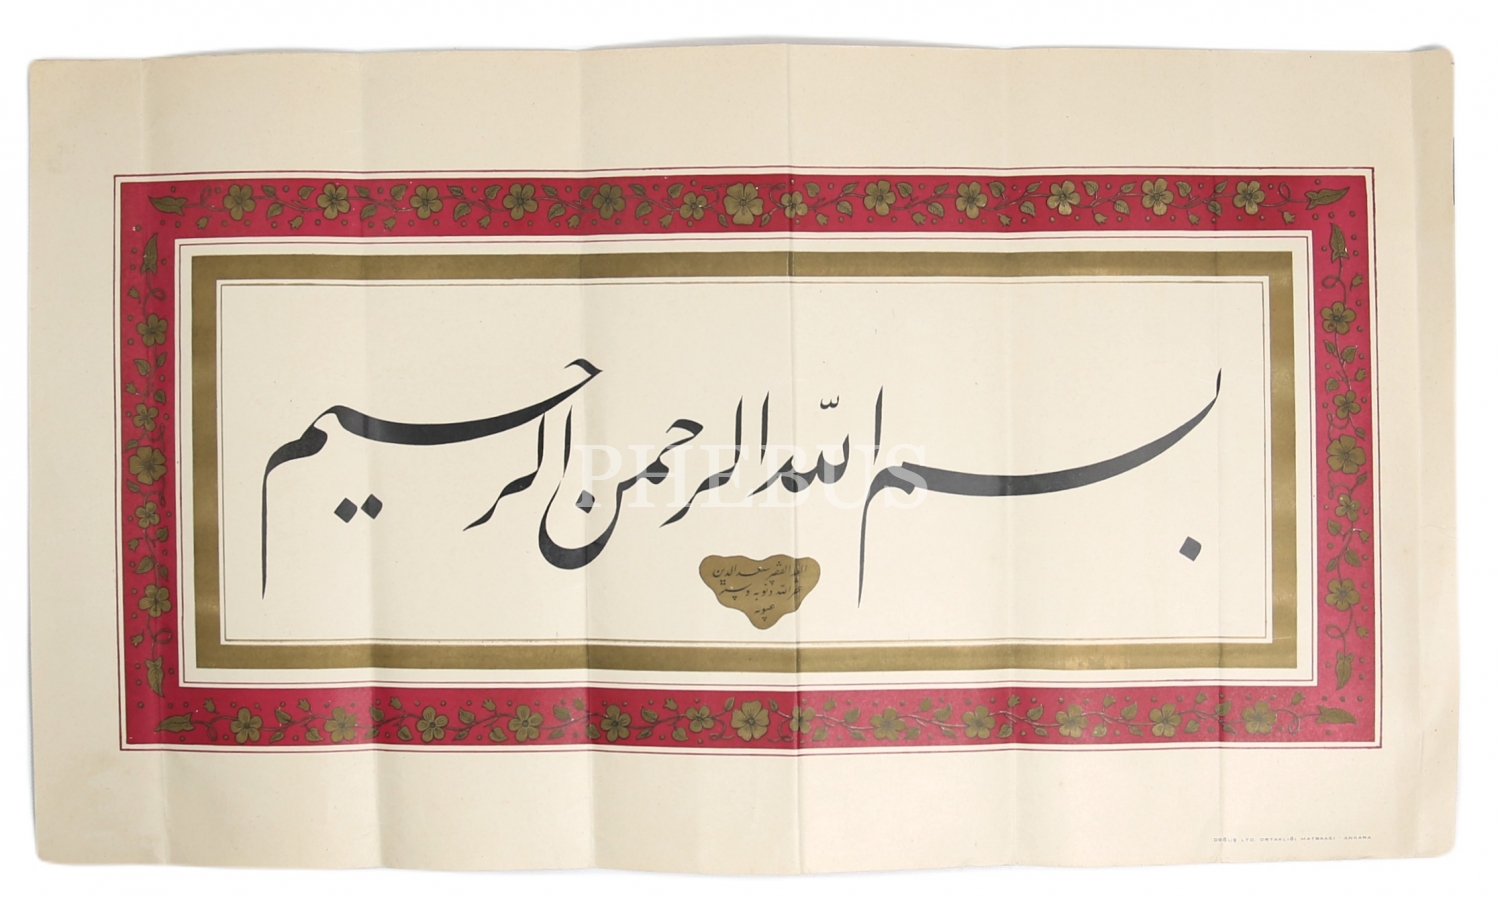 بسم الله الرحمن الرحيم
PHEBUS
العبد الفقير سعد الدين
غفر الله ذنوبه وستر
عيوبه
LTD. ORTAKLIĞI MATBAASI - ANKARA